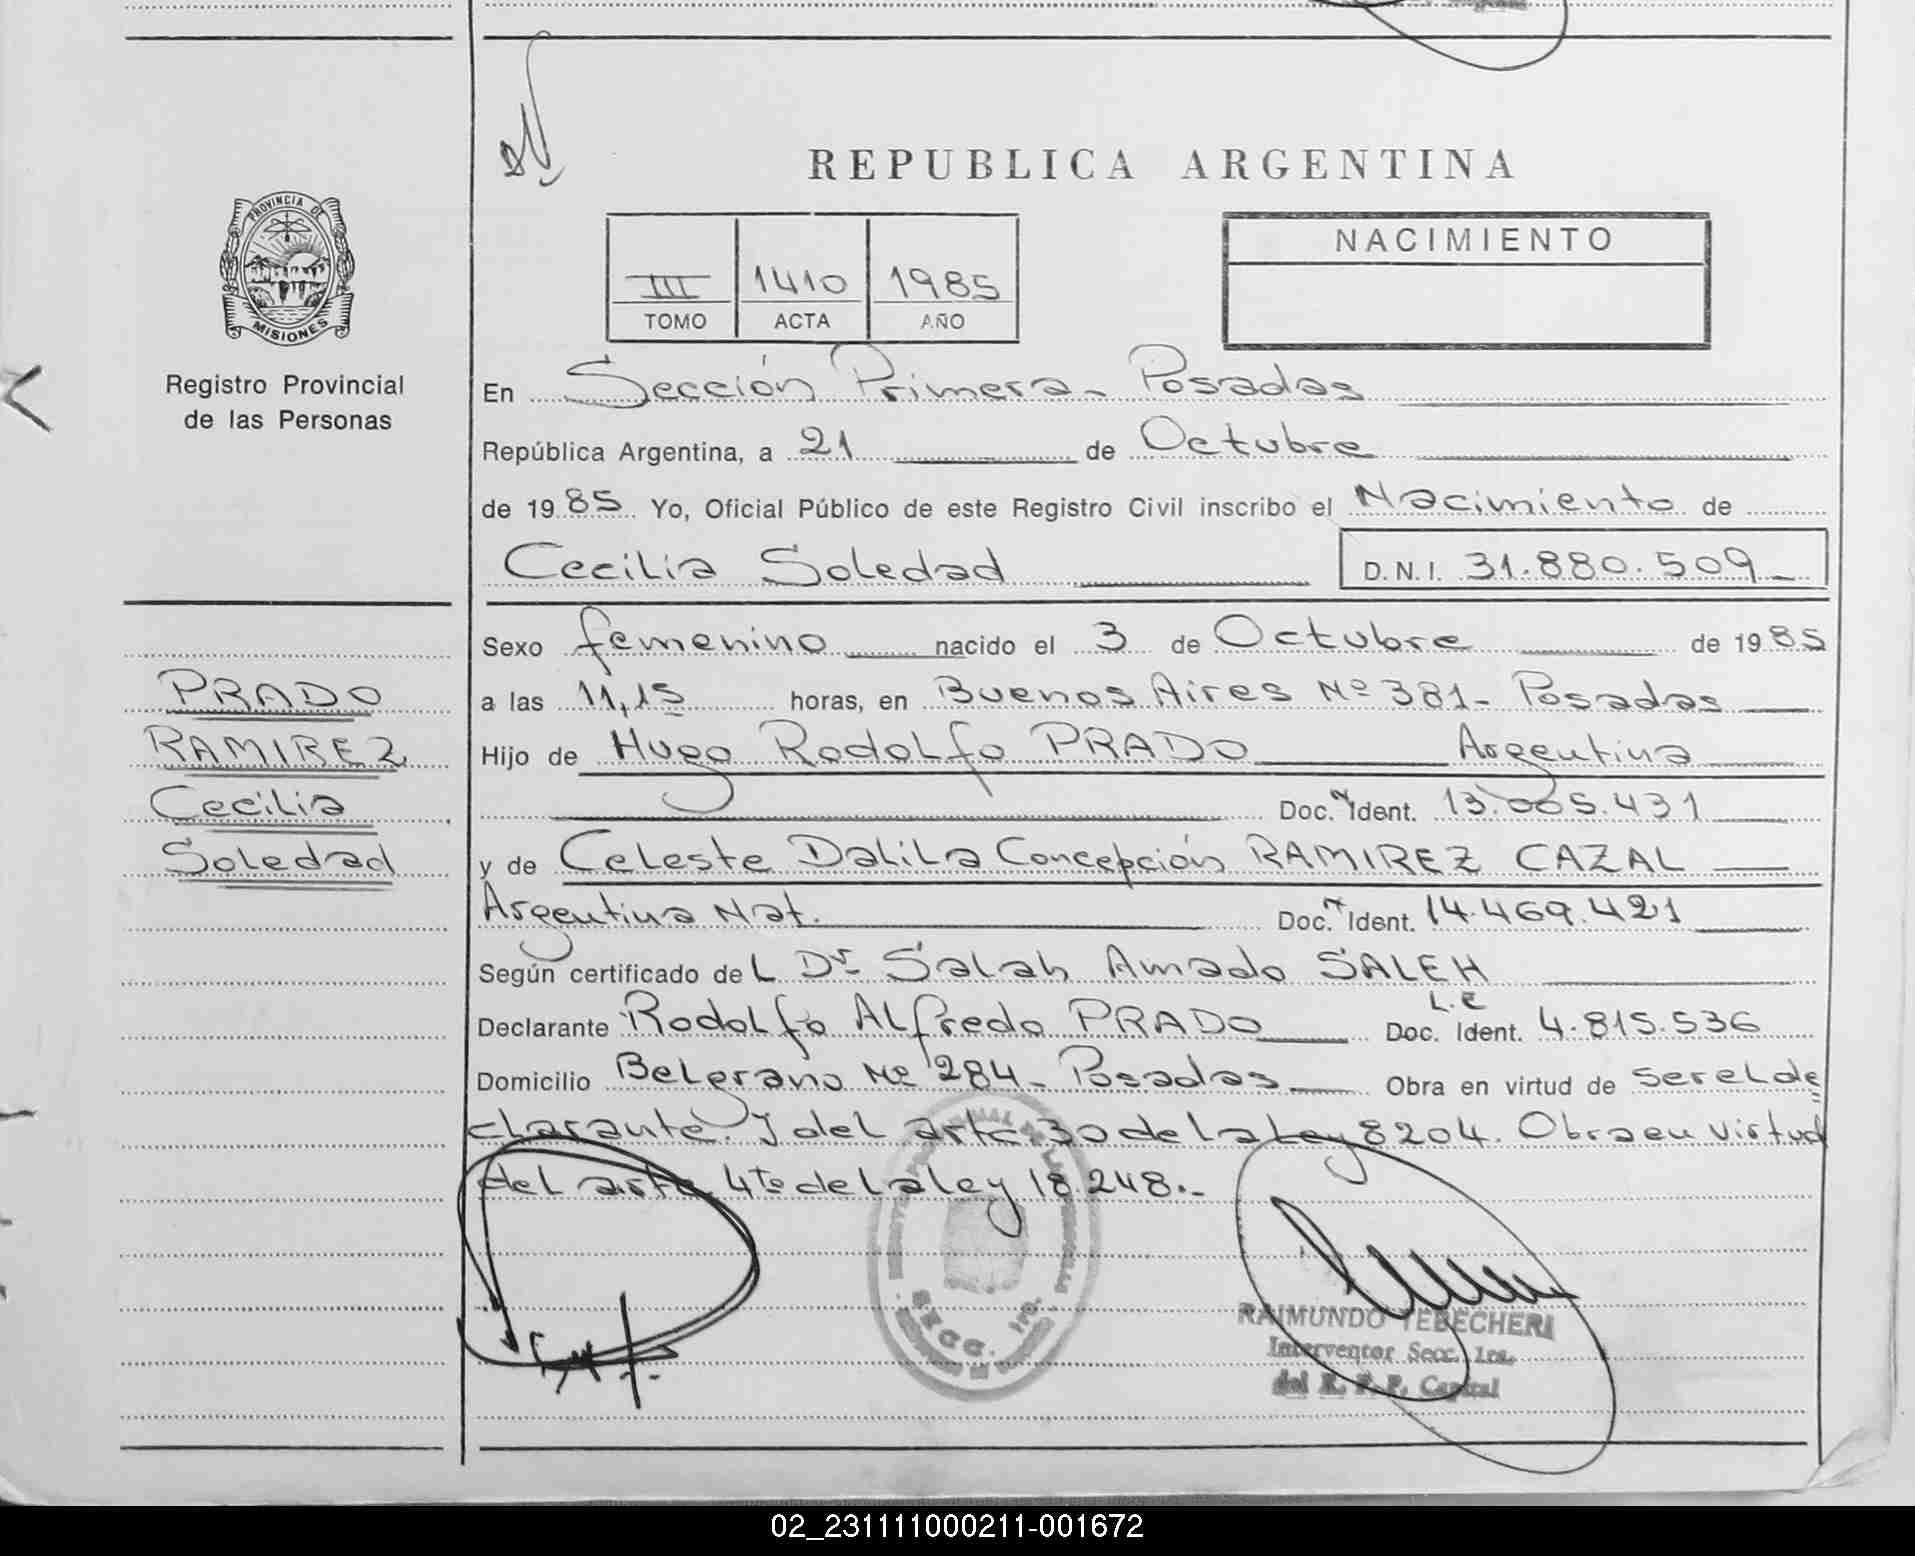 REPUBLICA ARGENTINA
PROVINCIA DE
MISIONES
Registro Provincial
de las Personas
III 1410 1985
TOMO ACTA AÑO
NACIMIENTO
En Sección Primera - Posadas
República Argentina, a 21 de Octubre
de 1985 Yo, Oficial Público de este Registro Civil inscribo el Nacimiento de
Cecilia Soledad D.N.I. 31.880.509
PRADO
RAMIREZ
Cecilia
Soledad
Sexo femenino nacido el 3 de Octubre de 1985
a las 11,15 horas, en Buenos Aires Nº 381 - Posadas
Hijo de Hugo Rodolfo PRADO Argentina
Doc. N Ident. 13.005.431
y de Celeste Dalila Concepción RAMIREZ CAZAL
Argentina Nat. Doc. Ident. 14.469.421
Según certificado del Dr Salah Amado SALEH
Declarante Rodolfo Alfredo PRADO L.E Doc. Ident. 4.815.536
Domicilio Belgrano Nº 284 - Posadas Obra en virtud de ser el de
clarante. y del artc. 30 de la Ley 8204. Obra en virtud
del artc 4to de la ley 18.248.-
SECC. 1ra.
RAIMUNDO YEBECHERI
Interventor Secc. 1ra.
del R. P. P. Capital
02_231111000211-001672